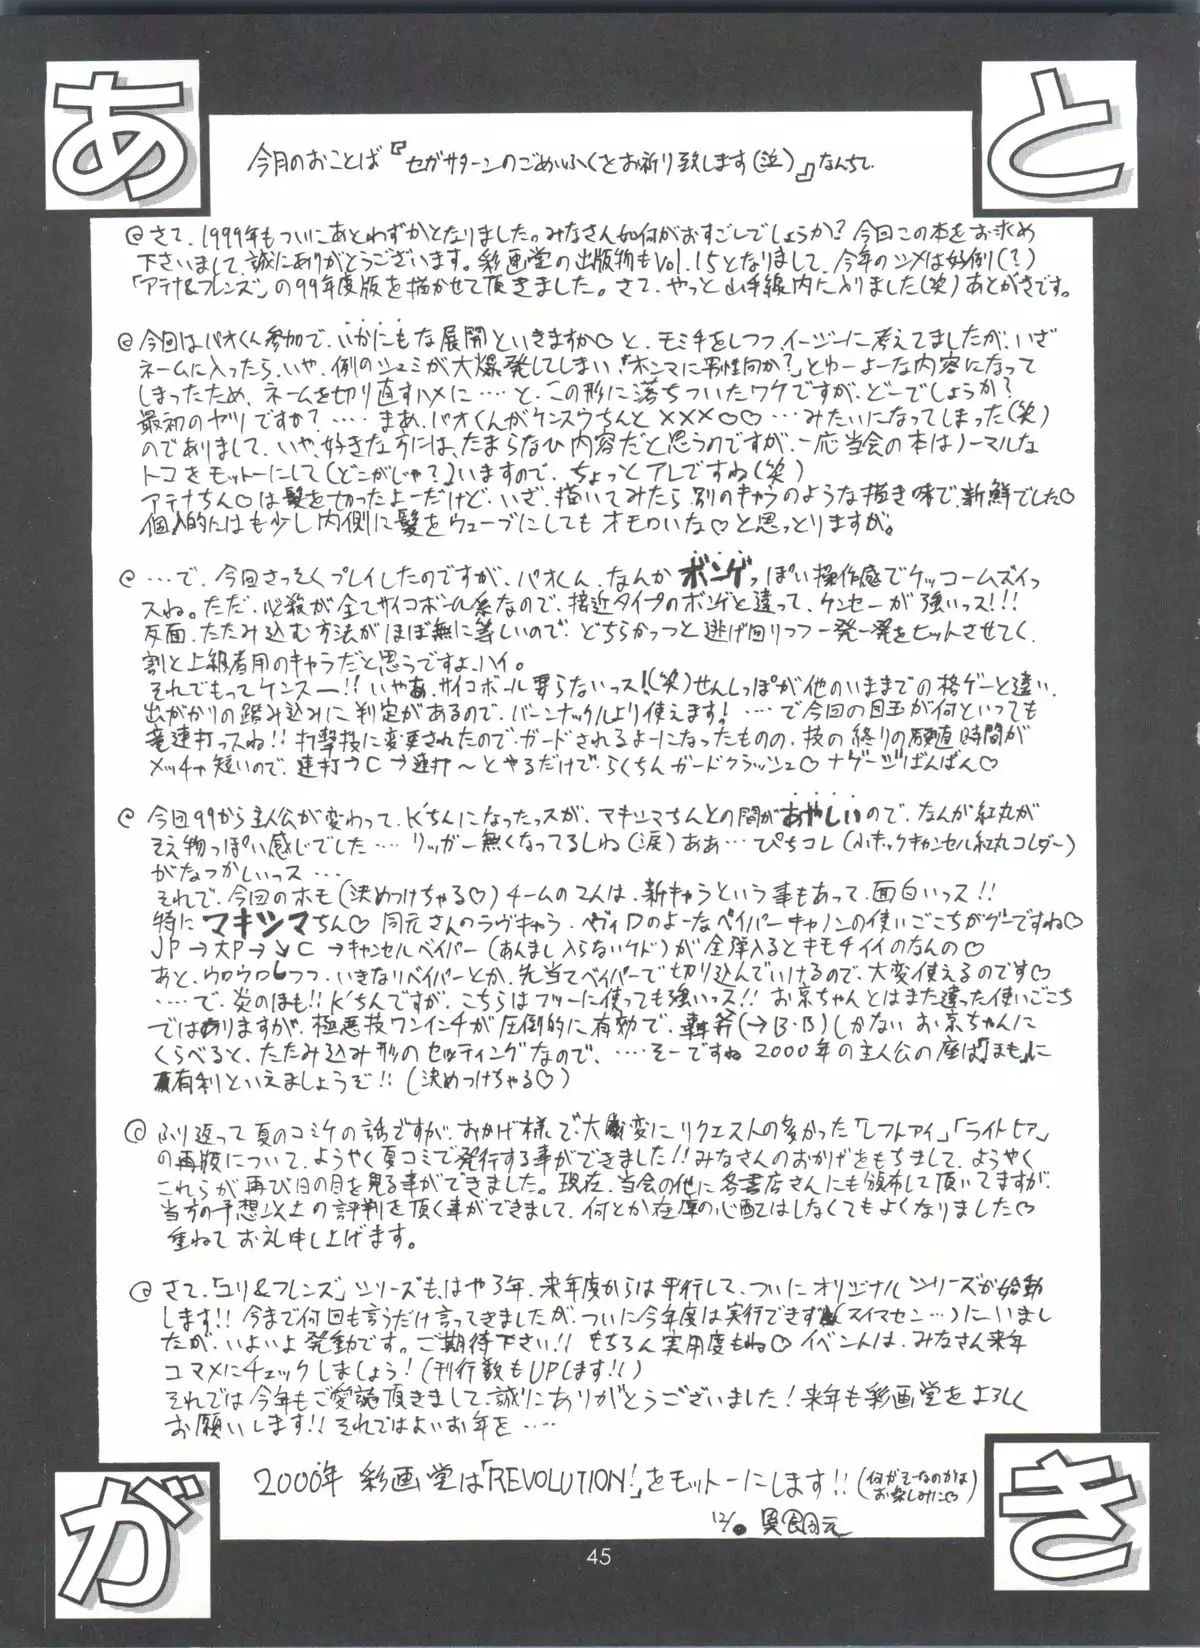 あと
がき
今月のおことば『セガサターンのごめいふくをお祈り致します(泣)』なんちて
@さて、1999年もついにあとわずかとなりました。みなさん如何がおすごしでしょうか?今回この本をお求め
下さいまして、誠にありがとうございます。彩画堂の出版物もVol.15となりまして、今年のシメは好例(?)
「アテナ&フレンズ」の99年度版を描かせて頂きました。さて、やっと山手線内に入りました(笑)あとがきです。
@今回はパオくん参加で、いかにもな展開といきますか♡と、モミ手をしつつ、イージーに考えてましたが、いざ
ネームに入ったら、いや、例のシュミが大爆発してしまい「ホンマに男性向か?」とゆーよーな内容になって
しまったため、ネームを切り直すハメに……と、この形に落ちついたワケですが、どーでしょうか?
最初のヤツですか?……まあ、パオくんがケンスウちんと×××♡♡…みたいになってしまった(笑)
のでありまして、いや、好きな方には、たまらなひ内容だと思うのですが、一応当会の本はノーマルな
トコをモットーにして(どこがじゃ?)いますので、ちょっとアレですね(笑)
アテナちん♡は髪を切ったよーだけど、いざ、描いてみたら別のキャラのような描き味で、新鮮でした♡
個人的にはも少し内側に髪をウェーブにしてもオモロいな♡と思っとりますが。
@…で、今回さっそくプレイしたのですが、パオくん、なんかボンゲっぽい操作感でケッコームズイっ
スね。ただ、必殺が全てサイコボール系なので、接近タイプのボンゲと違って、ケンセーが強いっス!!!
反面、たたみ込む方法がほぼ無に等しいので、どちらかっつと逃げ回りつつ一発一発をヒットさせてく、
割と上級者用のキャラだと思うですよ、ハイ。
それでもってケンスー!!いやぁ、サイコボール要らないっス!(笑)せんしっぽが他のいままでの格ゲーと違い、
出がかりの踏み込みに判定があるので、バーンナックルより使えます!……で今回の目玉が何といっても
竜連打っスね!!打撃技に変更されたので、ガードされるよーになったものの、技の終りの硬直時間が
メッチャ短いので、連打→C→連打〜とやるだけで、らくちんガードクラッシュ♡ナゲージばんばん♡
@今回99から主人公が変わって、K'ちんになったっスが、マキシマちんとの間があやしいので、なんか紅丸が
そえ物っぽい感じでした……リッガー無くなってるしね(涙)ああ…ぴちコレ(小キックキャンセル紅丸コレダー)
がなつかしいっス…
それで、今回のホモ(決めつけちゃる♡)チームの2人は、新キャラという事もあって、面白いっス!!
特にマキシマちん♡同元さんのラヴキャラ、ヘヴィDのよーなベイパーキャノンの使いごこちがグーですね♡
JP→大P→↘C→キャンセルベイパー(あんまし入らないケド)が全弾入るとキモチイイのなんの♡
あと、ウロウロしつつ、いきなりベイパーとか、先当てベイパーで切り込んでいけるので、大変使えるのです♡
……で、炎のほも!!K'ちんですが、こちらはフツーに使っても強いっス!!お京ちゃんとはまた違った使いごこち
ではありますが、極悪技ワンインチが圧倒的に有効で、轟斧(→B・B)しかないお京ちゃんに
くらべると、たたみ込み形のセッティングなので、……そーですね2000年の主人公の座は「ほも」に
有利といえましょうぞ!!(決めつけちゃる♡)
@ふり返って夏のコミケの話ですが、おかげ様で、大変にリクエストの多かった「レフトアイ」「ライトヒア」
の再版について、ようやく夏コミで発行する事ができました!!みなさんのおかげをもちまして、ようやく
これらが再び日の目を見る事ができました。現在、当会の他に各書店さんにも頒布して頂いてますが、
当方の予想以上の評判を頂く事ができまして、何とか在庫の心配はしなくてもよくなりました♡
重ねてお礼申し上げます。
@さて、「ユリ&フレンズ」シリーズも、はや3年、来年度からは平行して、ついにオリジナルシリーズが始動
します!!今まで何回も言うだけ言ってきましたが、ついに今年度は実行できず(スイマセン…)にいまし
たが、いよいよ発動です。ご期待下さい!!もちろん実用度もね♡イベントは、みなさん来年
コマメにチェックしましょう!(刊行数もUPします!!)
それでは今年もご愛読頂きまして、誠にありがとうございました!来年も彩画堂をよろしく
お願いします!!それではよいお年を……
2000年 彩画堂は「REVOLUTION!」をモットーにします!!(何がそーなのかはお楽しみに♡)
12/
45